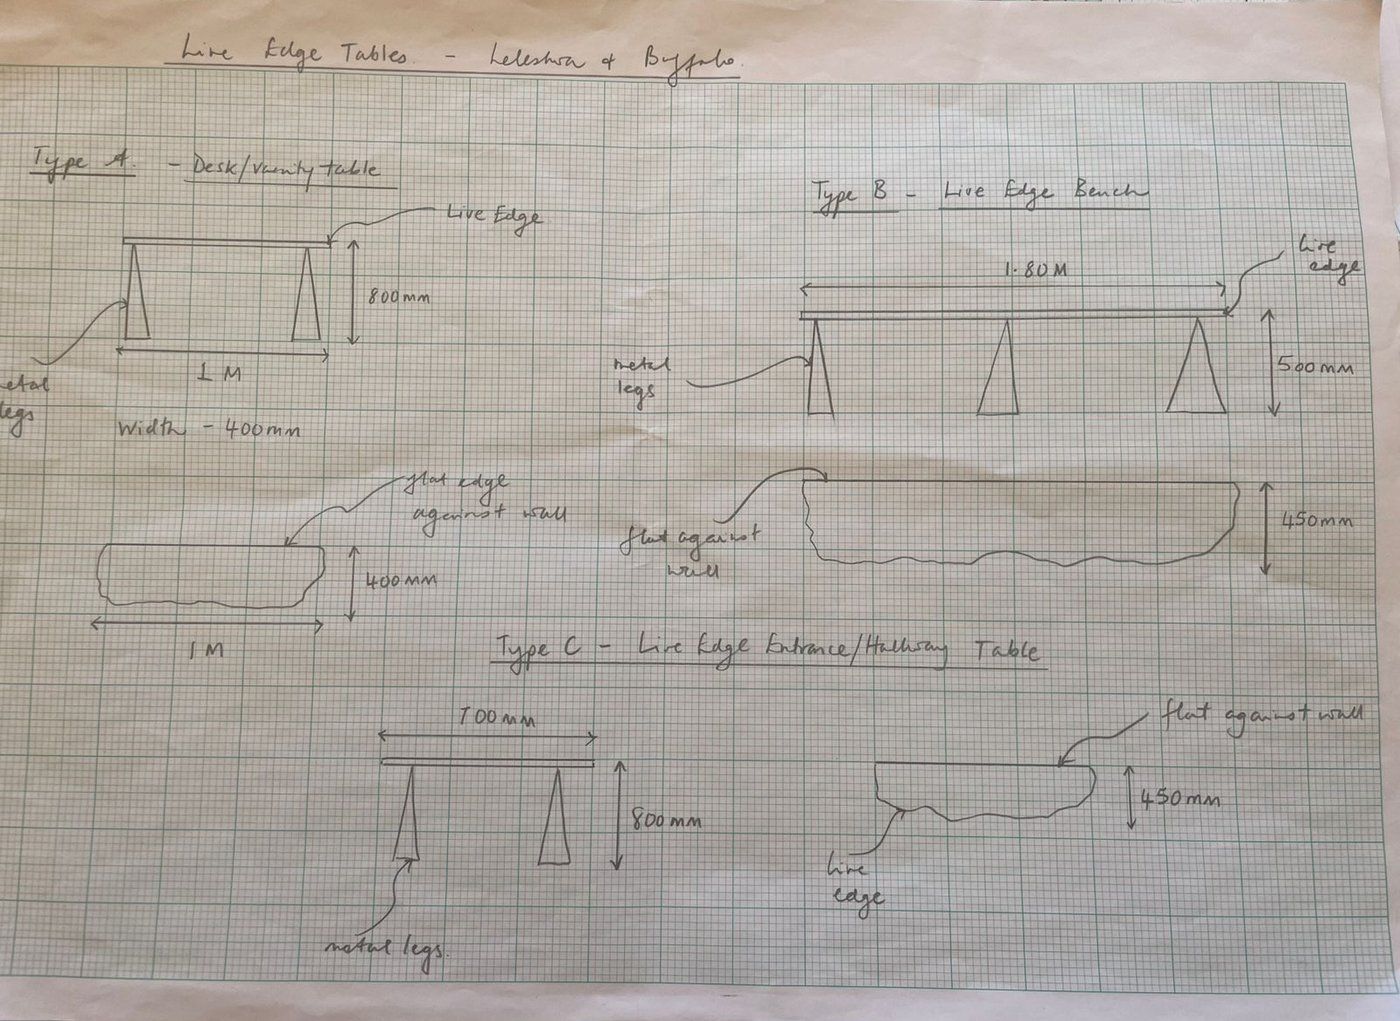 Live Edge Tables. - Leleshwa & Buffalo.
Type A. - Desk/Vanity table
Live Edge
800mm
metal
legs
1 M
Width - 400mm
flat edge
against wall
400mm
1 M
Type B - Live Edge Bench
1.80M
live
edge
metal
legs
500mm
flat against
wall
450mm
Type C - Live Edge Entrance/Hallway Table
700mm
800mm
metal legs.
flat against wall
450mm
live
edge